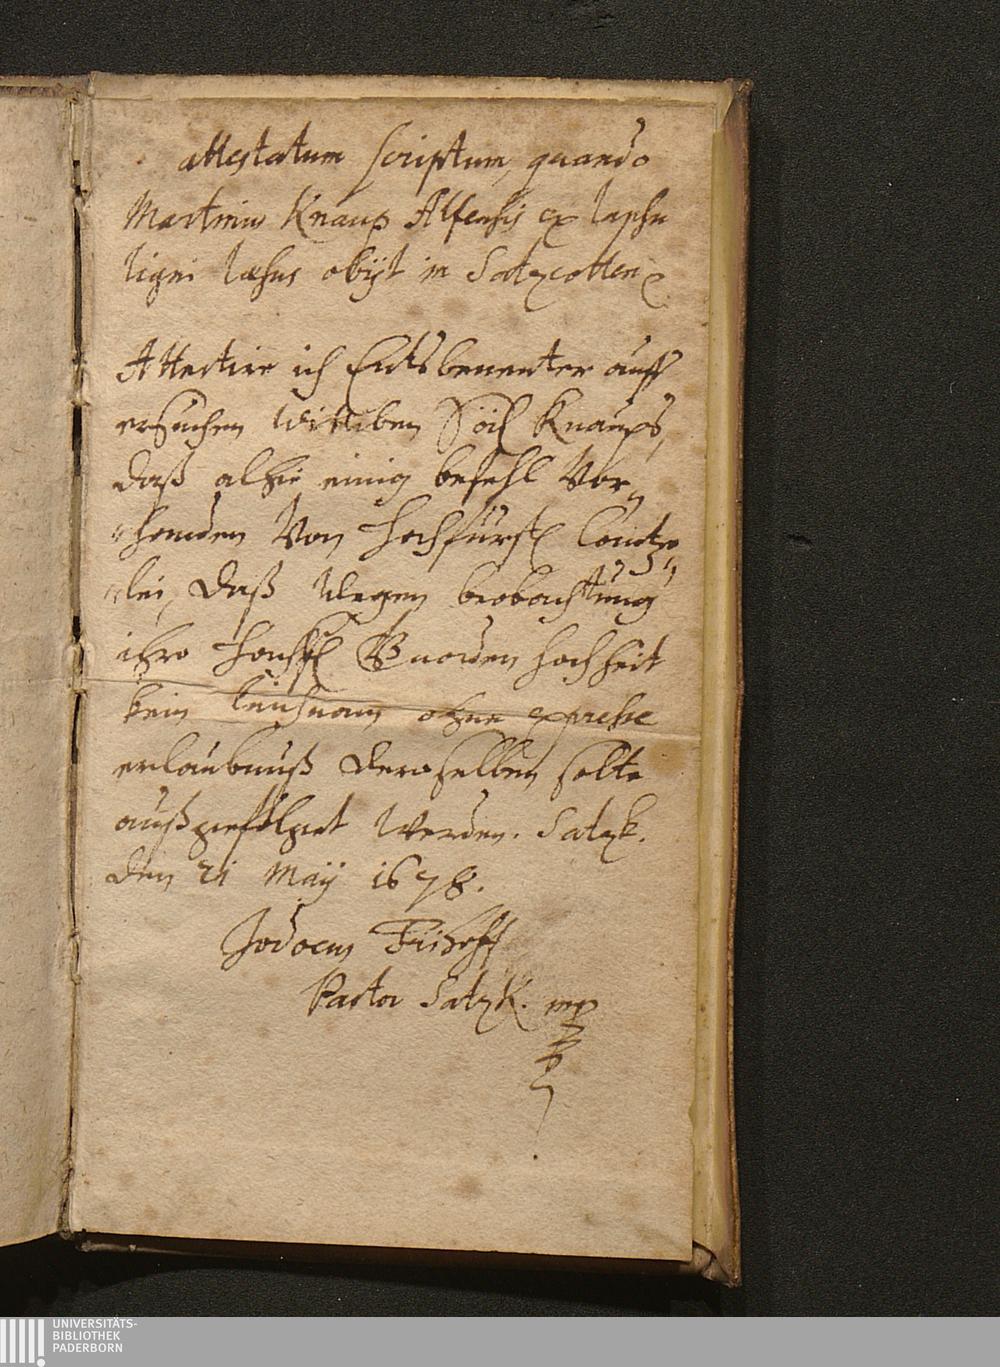 attestatum scriptum, quando
Martinus Knaup Alfensis ex lapsu
ligni læsus obijt in Saltzcotten
Attestire ich Endtsbenenter auff
ersuchen wittiben Knaups,
daß alhie einig befehl Vor„
„handen Von Hochfürstl Cantze„
„lei, daß wegen beobachtung
ihro Gnaden hochheit
kein leichnam ohne expresse
erlaubnuß deroselben solte
außgefolget werden. Saltzk.
den 21 Maij 1678.
Jodocus
Pastor Saltzk. mp
UNIVERSITÄTS-
BIBLIOTHEK
PADERBORN